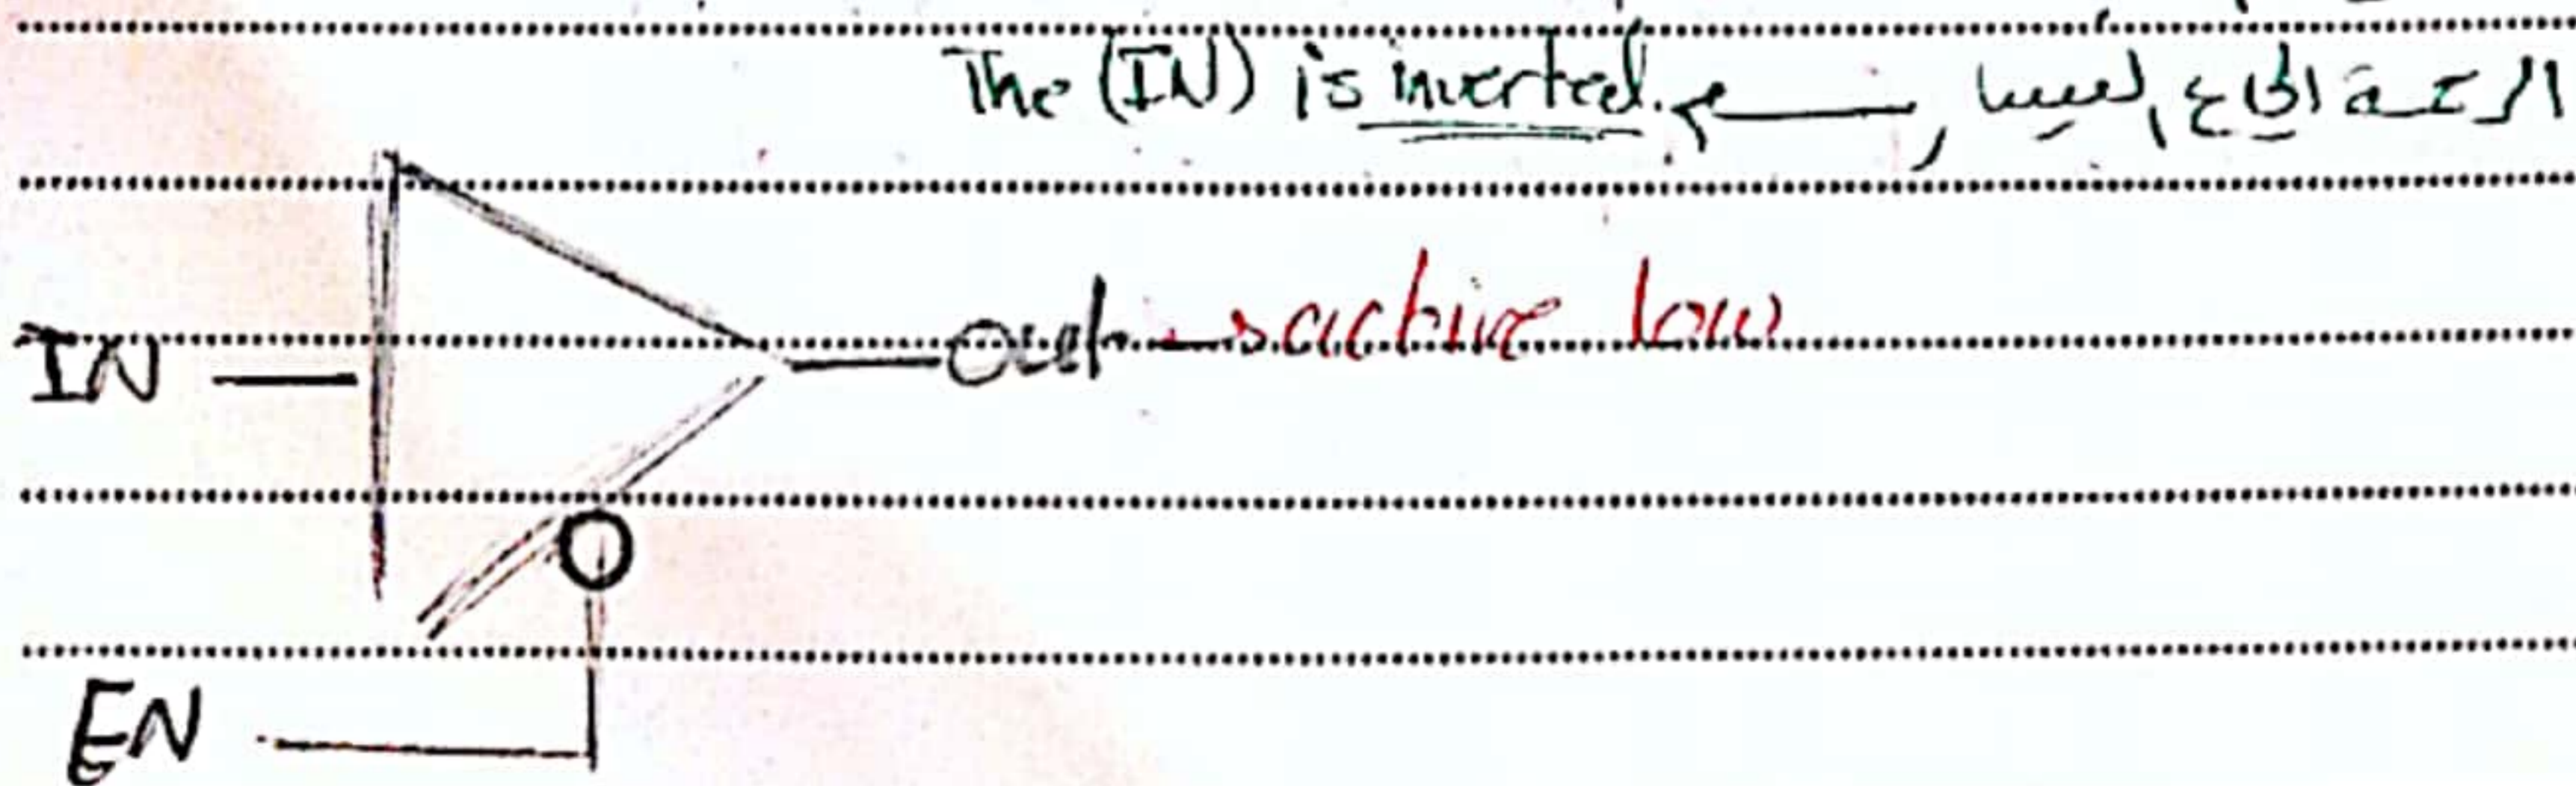 The (IN) is inverted.
IN
Out → active low
EN